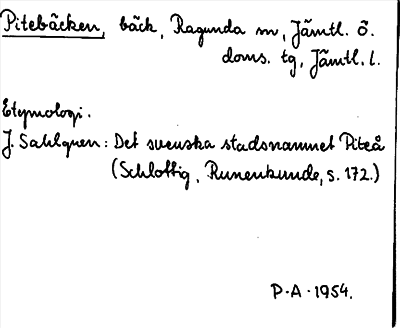 Pitebäcken, bäck, Ragunda sn, Jämtl. ö.
doms. tg, Jämtl. l.
Etymologi.
J. Sahlgren: Det svenska stadsnamnet Piteå
(Schlottig, Runenkunde, s. 172.)
P.A. 1954.